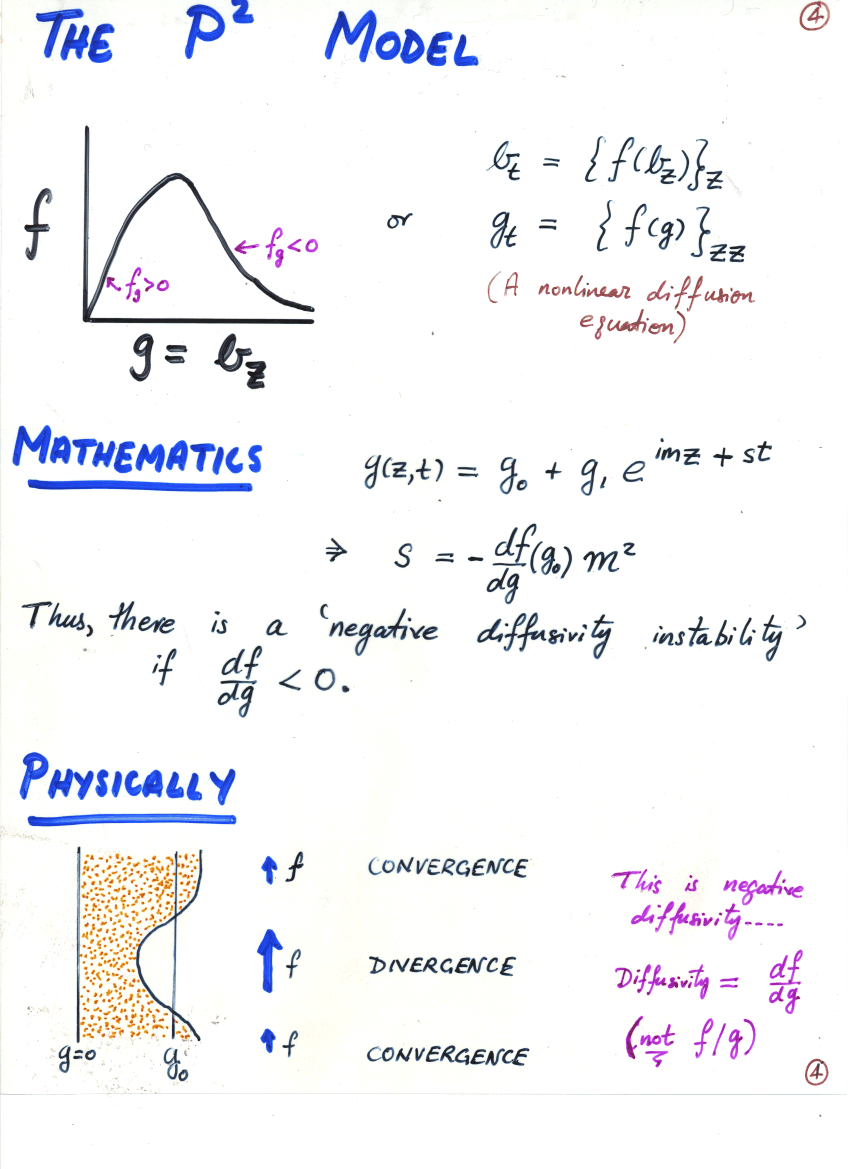 THE P² MODEL
④
f
f_g>0
f_g<0
g = b_z
b_t = {f(b_z)}_z
or
g_t = {f(g)}_zz
(A nonlinear diffusion
equation)
MATHEMATICS
g(z,t) = g₀ + g₁ e^{imz + st}
⇒ s = - df/dg (g₀) m²
Thus, there is a 'negative diffusivity instability'
if df/dg < 0.
PHYSICALLY
f CONVERGENCE
f DIVERGENCE
f CONVERGENCE
g=0 g₀
This is negative
diffusivity----
Diffusivity = df/dg
(not f/g)
④